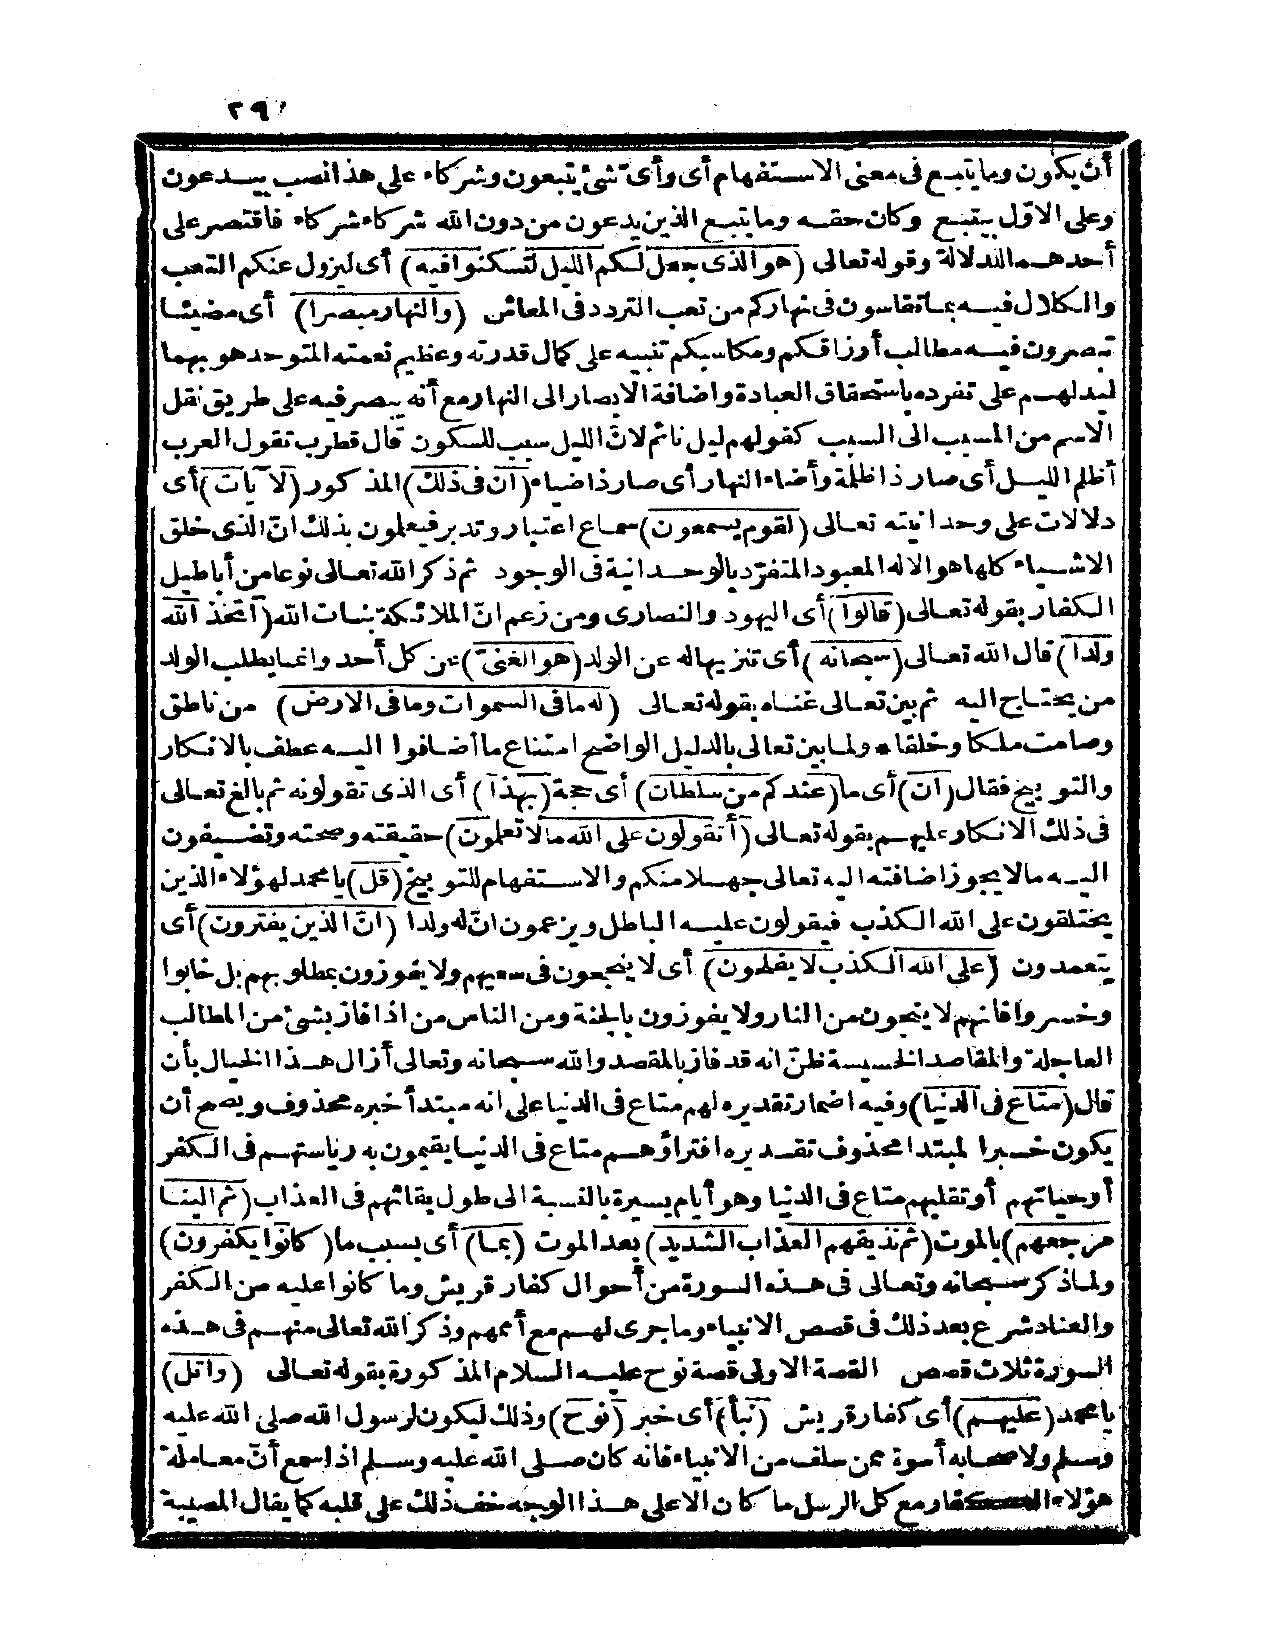 ٢٩
أن يكون وما يتبع فى معنى الاستفهام أى وأىّ شئ يتبعون وشركاء على هذا نصب بيدعون
وعلى الاوّل بيتبع وكان حقه وما يتبع الذين يدعون من دون الله شركاء شركاء فاقتصر على
أحدهما للدلالة وقوله تعالى (هو الذى جعل لكم الليل لتسكنوا فيه) أى ليزول عنكم التعب
والكلال فيه بما تقاسون فى نهاركم من تعب التردد فى المعاش (والنهار مبصرا) أى مضيئا
تبصرون فيه مطالب أرزاقكم ومكاسبكم تنبيه على كمال قدرته وعظيم نعمته المتوحد هو بهما
ليدلهم على تفرده باستحقاق العبادة واضافة الابصار الى النهار مع أنه يبصر فيه على طريق نقل
الاسم من المسبب الى السبب كقولهم ليل نائم لانّ الليل سبب للسكون قال قطرب تقول العرب
أظلم الليل أى صار ذا ظلمة وأضاء النهار أى صار ذا ضياء (ان فى ذلك) المذكور (لآيات) أى
دلالات على وحدانيته تعالى (لقوم يسمعون) سماع اعتبار وتدبر فيعلمون بذلك انّ الذى خلق
الاشياء كلها هو الاله المعبود المتفرّد بالوحدانية فى الوجود ثم ذكر الله تعالى نوعا من أباطيل
الكفار بقوله تعالى (قالوا) أى اليهود والنصارى ومن زعم انّ الملائكة بنات الله (اتخذ الله
ولدا) قال الله تعالى (سبحانه) أى تنزيها له عن الولد (هو الغنىّ) عن كل أحد وانما يطلب الولد
من يحتاج اليه ثم بين تعالى غناه بقوله تعالى (له ما فى السموات وما فى الارض) من ناطق
وصامت ملكا وخلقا * ولما بين تعالى بالدليل الواضح امتناع ما أضافوا اليه عطف بالانكار
والتوبيخ فقال (ان) أى ما (عندكم من سلطان) أى حجة (بهذا) أى الذى تقولونه ثم بالغ تعالى
فى ذلك الانكار عليهم بقوله تعالى (أتقولون على الله ما لا تعلمون) حقيقته وصحته وتضيفون
اليه ما لا يجوز اضافته اليه تعالى جهلا منكم والاستفهام للتوبيخ (قل) يا محمد لهؤلاء الذين
يختلقون على الله الكذب فيقولون عليه الباطل ويزعمون انّ له ولدا (انّ الذين يفترون) أى
يتعمدون (على الله الكذب لا يفلحون) أى لا ينجحون فى سعيهم ولا يفوزون بمطلوبهم بل خابوا
وخسروا فانهم لا ينجون من النار ولا يفوزون بالجنة ومن الناس من اذا فاز بشئ من المطالب
العاجلة والمقاصد الخسيسة ظنّ انه قد فاز بالمقصد والله سبحانه وتعالى أزال هذا الخيال بأن
قال (متاع فى الدنيا) وفيه اضمار تقديره لهم متاع فى الدنيا على انه مبتدأ خبره محذوف ويصح أن
يكون خبرا لمبتدا محذوف تقديره افتراؤهم متاع فى الدنيا يقيمون به رياستهم فى الكفر
أو حياتهم أو تقلبهم متاع فى الدنيا وهو أيام يسيرة بالنسبة الى طول بقائهم فى العذاب (ثم الينا
مرجعهم) بالموت (ثم نذيقهم العذاب الشديد) بعد الموت (بما) أى بسبب ما (كانوا يكفرون)
ولما ذكر سبحانه وتعالى فى هذه السورة من أحوال كفار قريش وما كانوا عليه من الكفر
والعناد شرع بعد ذلك فى قصص الانبياء وما جرى لهم مع أممهم وذكر الله تعالى منهم فى هذه
السورة ثلاث قصص القصة الاولى قصة نوح عليه السلام المذكورة بقوله تعالى (واتل)
يا محمد (عليهم) أى كفار قريش (نبأ) أى خبر (نوح) وذلك ليكون لرسول الله صلى الله عليه
وسلم ولاصحابه أسوة بمن سلف من الانبياء فانه كان صلى الله عليه وسلم اذا سمع أنّ معاملة
هؤلاء الكفار مع كل الرسل ما كان الا على هذا الوجه خف ذلك على قلبه كما يقال المصيبة